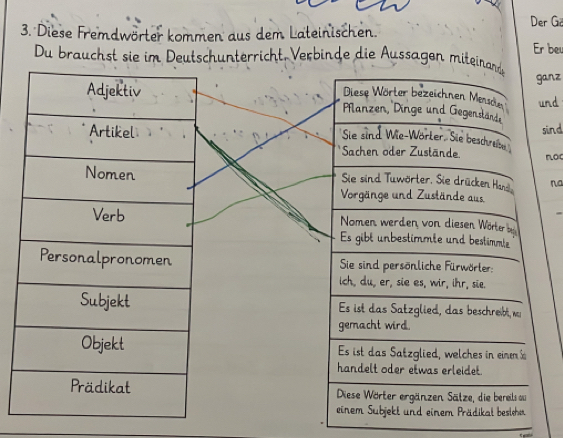 3. Diese Fremdwörter kommen aus dem Lateinischen.
Du brauchst sie im Deutschunterricht. Verbinde die Aussagen miteinande
Adjektiv
Artikel
Nomen
Verb
Personalpronomen
Subjekt
Objekt
Prädikat
Diese Wörter bezeichnen Menschen,
Pflanzen, Dinge und Gegenstände.
Sie sind Wie-Wörter. Sie beschreiben
Sachen oder Zustände.
Sie sind Tuwörter. Sie drücken
Vorgänge und Zustände aus.
Nomen werden von diesen Wörter
Es gibt unbestimmte und bestimmte
Sie sind persönliche Fürwörter:
ich, du, er, sie es, wir, ihr, sie.
Es ist das Satzglied, das beschreibt,
gemacht wird.
Es ist das Satzglied, welches in einem
handelt oder etwas erleidet.
Diese Wörter ergänzen Sätze, die bereits aus
einem Subjekt und einem Prädikat bestehen.
Er
ganz
und
sind